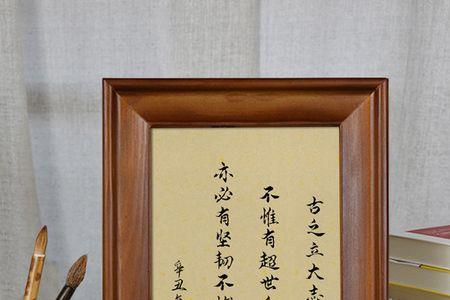 古之立大志
不惟有超世
亦必有坚韧不
辛丑